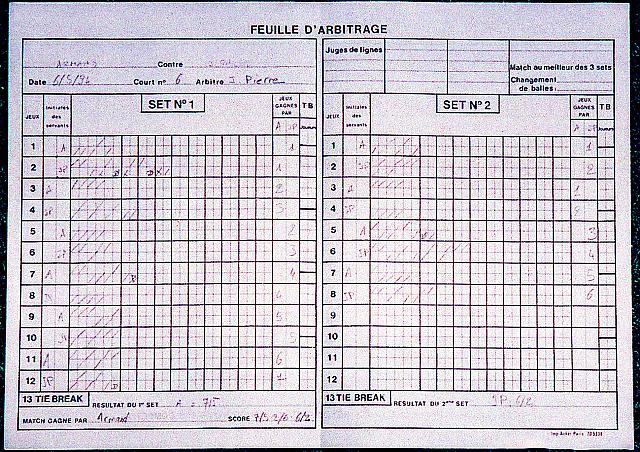 FEUILLE D'ARBITRAGE
ARMAND Contre
Date Court nº 6 Arbitre J. Pierre
Juges de lignes
Match au meilleur des 3 sets
Changement
de balles:
JEUX
Initiales
des
servants
SET Nº 1
JEUX
GAGNES
PAR
TB
A JP Joueurs
1 A 1
2 JP 1
3 A 2
4 JP 3
5 A 2
6 JP 3
7 A 4
8 4
9 A 5
10 5
11 A 6
12 JP 7
13 TIE BREAK RESULTAT DU 1er SET A = 7/5
MATCH GAGNE PAR Armand SCORE 7/5 2/6 6/2
JEUX
Initiales
des
servants
SET Nº 2
JEUX
GAGNES
PAR
TB
A JP Joueurs
1 A 1
2 JP 2
3 A 1
4 JP 2
5 A 3
6 JP 4
7 A 5
8 JP 6
9
10
11
12
13 TIE BREAK RESULTAT DU 2ème SET JP 6/2